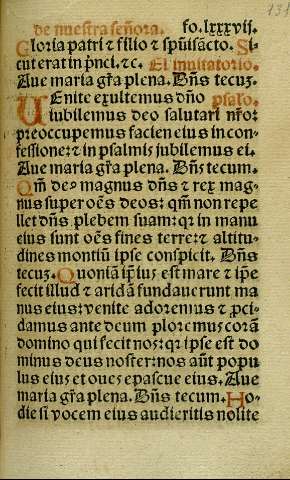 de nuestra señora. fo. lxxxvij. 131
Gloria patri ⁊ filio ⁊ sp̃ui sãcto. Si
cut erat in p̃nci. ⁊ c. El inuitatorio.
Aue maria gr̃a plena. Dñs tecuz.
VEnite exultemus dño psalo.
iubilemus deo salutari nr̃o:
preoccupemus faciem eius in con-
fessione: ⁊ in psalmis jubilemus ei.
Aue maria gr̃a plena. Dñs tecum.
Qm̃ de⁹ magnus dñs ⁊ rex mag-
nus super oẽs deos: qm̃ non repe
llet dñs plebem suam: qꝛ in manu
eius sunt oẽs fines terre: ⁊ altitu-
dines montiũ ipse conspicit. Dñs
tecuz. Quoniã ip̃ius est mare ⁊ ip̃e
fecit illud ⁊ aridã fundauerunt ma
nus eius: venite adoremus ⁊ ꝓci-
damus ante deum ploremus corã
domino qui fecit nos: qꝛ ipse est do
minus deus noster: nos aũt popu
lus eius ⁊ oues epascue eius. Aue
maria gr̃a plena. Dñs tecum. Ho-
die si vocem eius audieritis nolite